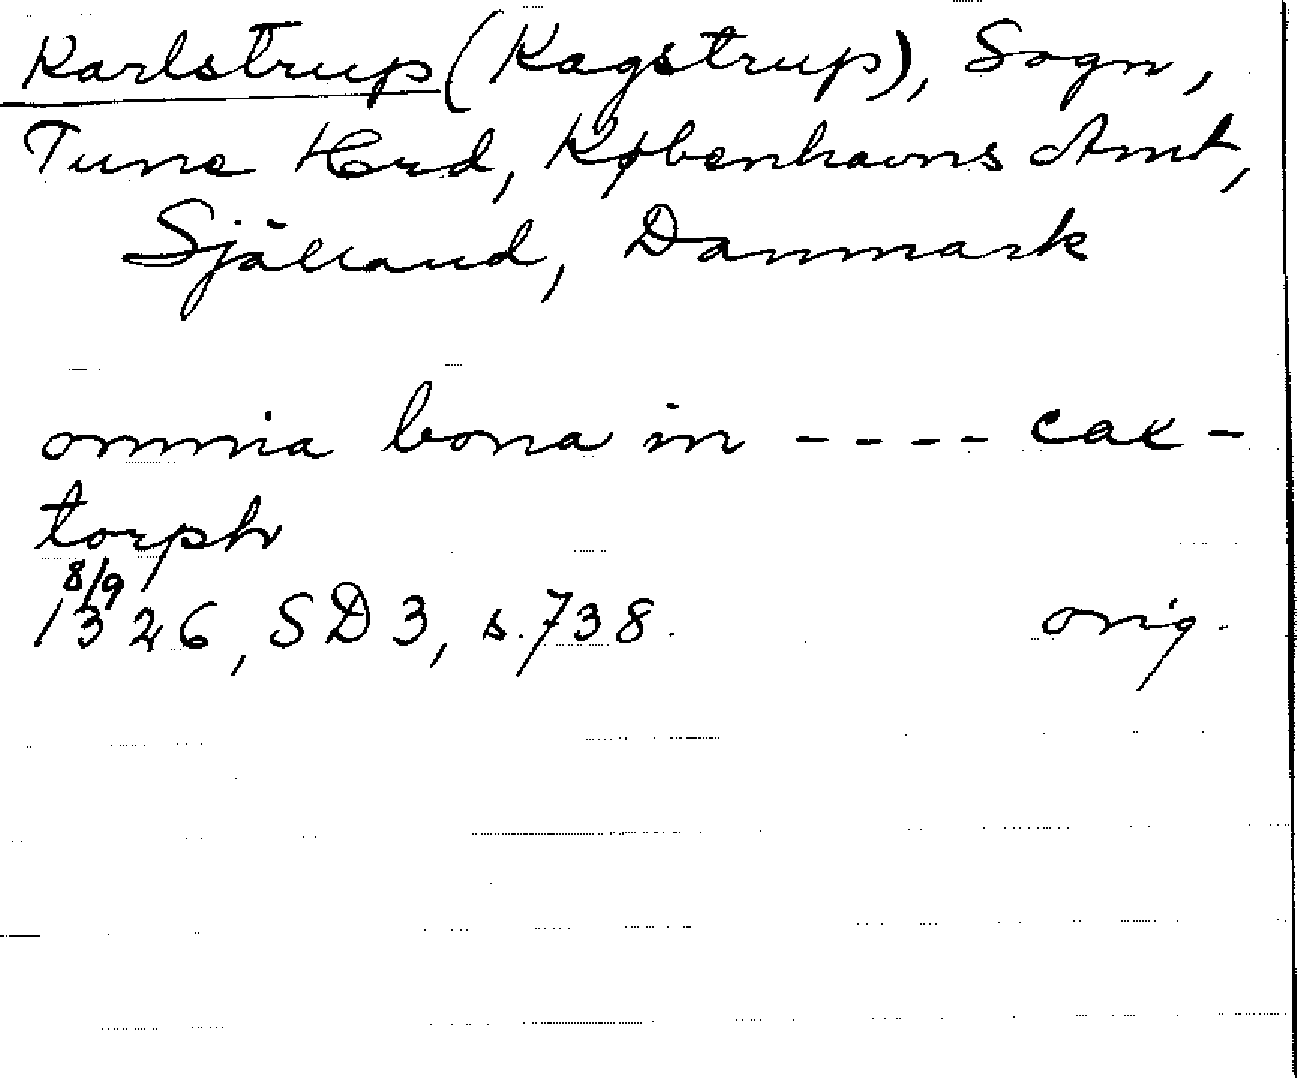 Karlstrup (Kagstrup), Sogn,
Tune Hrd, Københavns Amt,
Själland, Danmark
omnia bona in ---- cax-
torph
8/9
1326, SD 3, s. 738. orig.